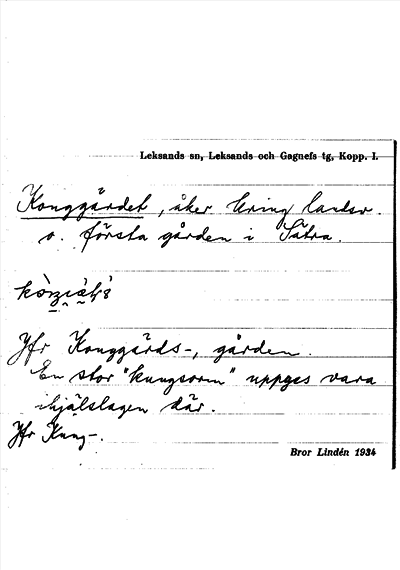 Leksands sn, Leksands och Gagnefs tg, Kopp. l.
Konggärdet, åker kring landsv.
o. första gården i Sätra.
Jfr Konggärds-, gården.
En stor "kungsorm" uppges vara
ihjälslagen där.
Jfr Kung-.
Bror Lindén 1934